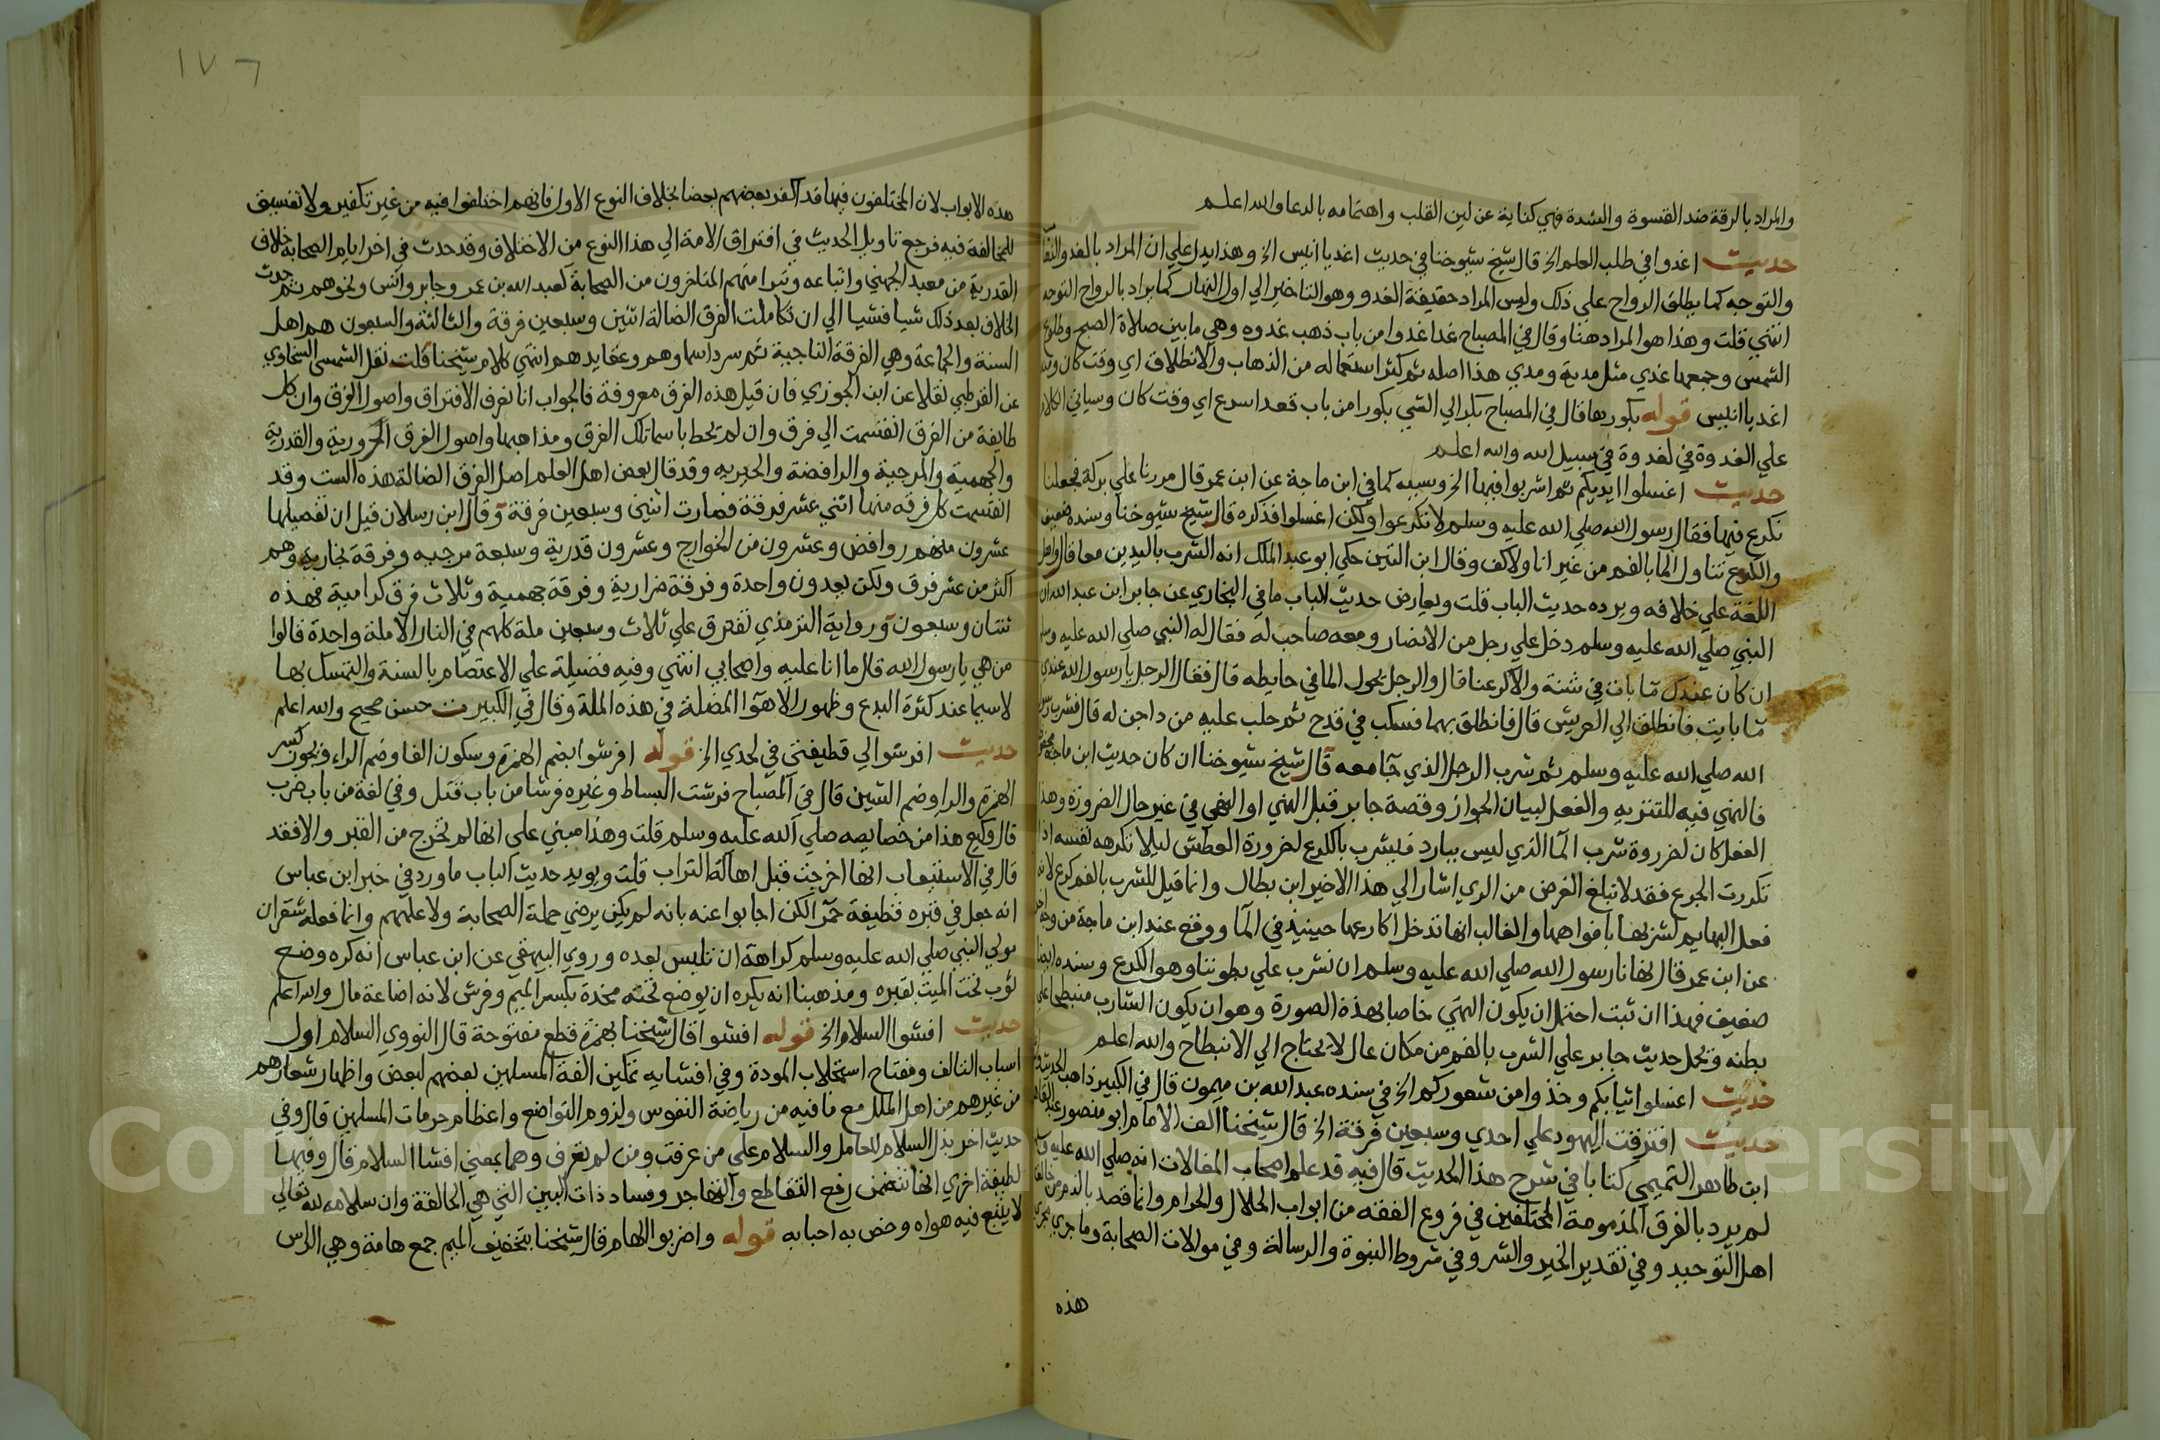 والمراد بالرقة ضد القسوة والشدة فهي كناية عن لين القلب واهتمامه بالدعا والله اعلم
حديث اغدوا في طلب العلم الخ قال شيخ شيوخنا في حديث اغد يا انيس الخ وهذا يدل علي ان المراد بالغدو
والتوجه كما يطلق الرواح علي ذلك وليس المراد حقيقة الغدو وهو التاخير الي اول النهار كما يراد بالرواح التوجه
انتهي قلت وهذا هو المراد هنا وقال في المصباح غدا غدوا من باب ذهب غدوه وهي ما بين صلاة الصبح وطلوع
الشمس وجمعها غدي مثل مدية ومدي هذا اصله ثم كثر استعماله من الذهاب والانطلاق اي وقت كان ومنه
اغد يا انيس قوله بكورها قال في المصباح بكر الي الشي بكورا من باب قعد اسرع اي وقت كان وسياتي الكلام
علي الغدوة في لغدوة في سبيل الله والله اعلم
حديث اغسلوا ايديكم ثم اشربوا فيها الخ وسببه كما في ابن ماجة عن ابن عمر قال مررنا علي بركة فجعلنا
نكرع فيها فقال رسول الله صلي الله عليه وسلم لا تكرعوا ولكن اغسلوا فذكره قال شيخ شيوخنا وسنده ضعيف
والكرع تناول الما بالفم من غير انا ولا كف وقال ابن التين حكي ابو عبد الملك انه الشرب باليدين معا قال واهل
اللغة علي خلافه ويرده حديث الباب قلت ويعارض حديث الباب ما في البخاري عن جابر ابن عبد الله ان
النبي صلي الله عليه وسلم دخل علي رجل من الانصار ومعه صاحب له فقال له النبي صلي الله عليه وسلم
ان كان عندك ما بات في شنة والا كرعنا قال والرجل يحول الما في حايطه قال فقال الرجل يا رسول الله عندي
ما بايت فانطلق الي العريش قال فانطلق بهما فسكب في قدح ثم حلب عليه من داجن له قال فشرب رسول
الله صلي الله عليه وسلم ثم شرب الرجل الذي جا معه قال شيخ شيوخنا ان كان حديث ابن ماجه محفوظا
فالنهي فيه للتنزيه والفعل لبيان الجواز وقصة جابر قبل النهي او النهي في غير حال الضرورة وهذا
الفعل كان لضرروة شرب الما الذي ليس ببارد فيشرب بالكرع لضرورة العطش ليلا تكرهه نفسه اذا
تكررت الجرع فقد لا تبلغ الغرض من الري اشار الي هذا الاخير ابن بطال وانما قيل للشرب بالفم كرع لانه
فعل البهايم لشربها بافواهها والغالب انها تدخل اكارعها حينيذ في الما ووقع عند ابن ماجة من وجه اخر
عن ابن عمر قال نهانا رسول الله صلي الله عليه وسلم ان نشرب علي بطوننا وهو الكرع وسنده ايضا
ضعيف فهذا ان ثبت احتمل ان يكون النهي خاصا بهذه الصورة وهو ان يكون الشارب منبطحا علي
بطنه ويحمل حديث جابر علي الشرب بالفم من مكان عال لا يحتاج الي الانبطاح والله اعلم
حديث اغسلوا ثيابكم وخذوا من شعوركم الخ في سنده عبد الله بن ميمون قال في الكبير ذاهب الحديث
حديث افترقت اليهود علي احدي وسبعين فرقة الخ قال شيخنا الف الامام ابو منصور عبد القاهر
ابن طاهر التميمي كتابا في شرح هذا الحديث قال فيه قد علم اصحاب المقالات انه صلي الله عليه وسلم
لم يرد بالفرق المذمومة المختلفين في فروع الفقه من ابواب الحلال والحرام وانما قصد بالذم من خالف
اهل التوحيد وفي تقدير الخير والشر وفي شروط النبوة والرسالة وفي موالات الصحابة وما جري مجري
هذه
١٧٦
هذه الابواب لان المختلفون فيها قد اكفر بعضهم بعضا بخلاف النوع الاول فانهم اختلفوا فيه من غير تكفير ولا تفسيق
للمخالفة فيه فرجع تاويل الحديث في افتراق الامة الي هذا النوع من الاختلاف وقد حدث في اخر ايام الصحابة خلاف
القدرية من معبد الجهني واتباعه وتبرا منهم المتاخرون من الصحابة كعبد الله بن عمر وجابر وانس ونحوهم ثم حدث
الخلاف بعد ذلك شيا فشيا الي ان تكاملت الفرق الضالة اثنين وسبعين فرقة والثالثة والسبعون هم اهل
السنة والجماعة وهي الفرقة الناجية ثم سرد اسماوهم وعقايدهم انتهي كلام شيخنا قلت نقل الشمس السخاوي
عن القرطبي نقلا عن ابن الجوزي فان قيل هذه الفرق معروفة فالجواب انا نعرف الافتراق واصول الفرق وان كل
طايفة من الفرق انقسمت الي فرق وان لم يحط باسما تلك الفرق ومذاهبها واصول الفرق الحرورية والقدرية
والجهمية والمرجية والرافضة والجبريه وقد قال بعض اهل العلم اصل الفرق الضالة هذه الست وقد
انقسمت كل فرقه منها اثني عشر فرقة فصارت اثنين وسبعين فرقة وقال ابن رسلان قيل ان تفصيلها
عشرون منهم روافض وعشرون من الخوارج وعشرون قدرية وسبعة مرجيه وفرقة نجاريه وهم
اكثر من عشر فرق ولكن يعدون واحدة وفرقة ضرارية وفرقة جهمية وثلاث فرق كرامية فهذه
ثنتان وسبعون ورواية الترمذي تفترق علي ثلاث وسبعين ملة كلهم في النار الا ملة واحدة قالوا
من هي يا رسول الله قال ما انا عليه واصحابي انتهي وفيه فضيلة علي الاعتصام بالسنة والتمسك بها
لاسيما عند كثرة البدع وظهور الاهوآ المضلة في هذه الملة وقال في الكبير ت حسن صحيح والله اعلم
حديث افرشوا لي قطيفتي في لحدي الخ قوله افرشوا بضم الهمزة وسكون الفا وضم الراء ويجوز كسر
الهمزة والرا وضم الشين قال في المصباح فرشت البساط وغيره فرشا من باب قتل وفي لغة من باب ضرب
قال وكيع هذا من خصايصه صلي الله عليه وسلم قلت وهذا مبني علي انها لم تخرج من القبر والا فقد
قال في الاستيعاب انها اخرجت قبل اهالة التراب قلت ويويد حديث الباب ما ورد في خبر ابن عباس
انه جعل في قبره قطيفة حمرا لكن اجابوا عنه بانه لم يكن يرضي جملة الصحابة ولا علمهم وانما فعله شقران
مولي النبي صلي الله عليه وسلم كراهة ان تلبس بعده وروي البيهقي عن ابن عباس انه كره وضع
ثوب تحت الميت بقبره ومذهبنا انه يكره ان يوضع تحته مخدة بكسر الميم وفرش لانه اضاعة مال والله اعلم
حديث افشوا السلام الخ قوله افشوا قال شيخنا بهمزة قطع مفتوحة قال النووي السلام اول
اسباب التالف ومفتاح استجلاب المودة وفي افشايه تمكين الفة المسلمين بعضهم لبعض واظهار شعارهم
من غيرهم من اهل الملل مع ما فيه من رياضة النفوس ولزوم التواضع واعظام حرمات المسلمين قال وفي
حديث اخر بذل السلام للعامل والسلام علي من عرفت ومن لم تعرف وهما بمعني افشا السلام قال وفيها
لطيفة اخري انها تتضمن رفع التقاطع والتهاجر وفساد ذات البين التي هي الحالقة وان سلامه لله تعالي
لا يتبع فيه هواه وخص به احبابه قوله واضربوا الهام قال شيخنا بتخفيف الميم جمع هامة وهي الراس